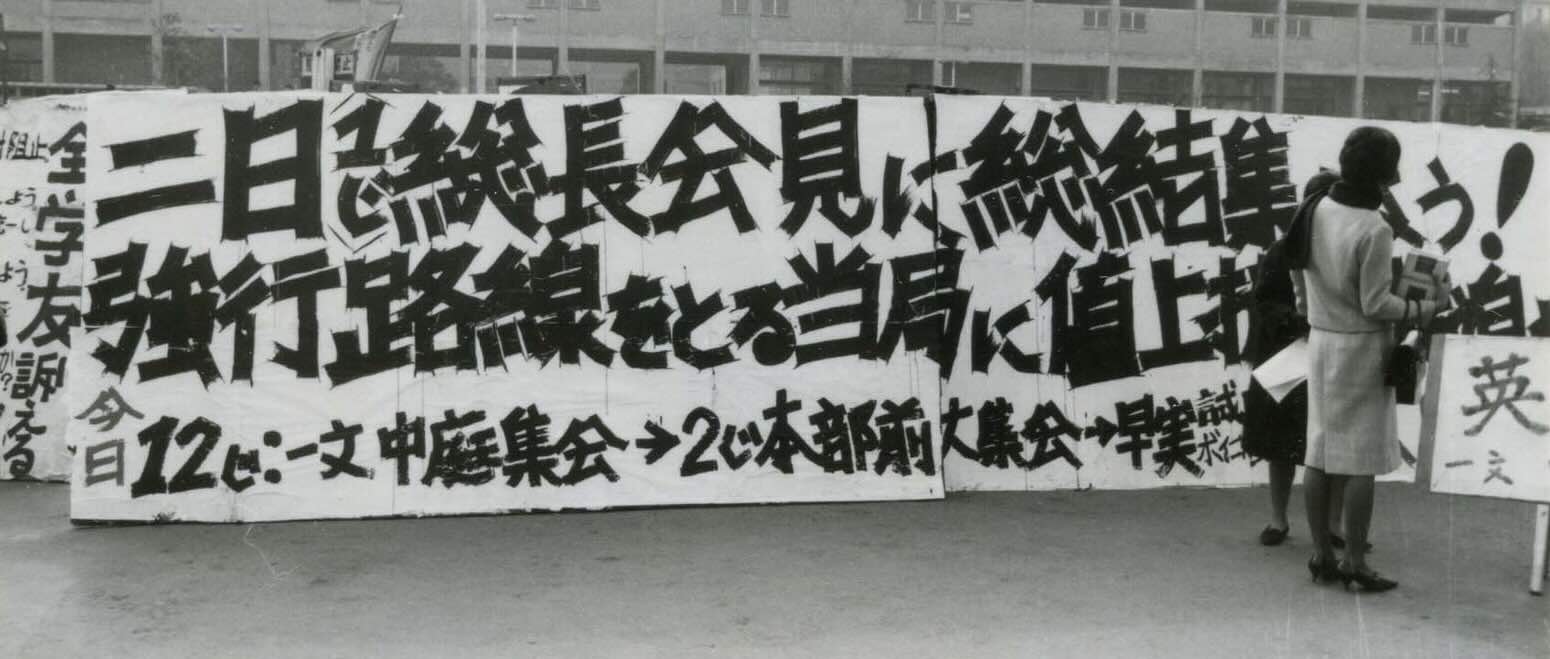 二日総長会見に総結集 う!
強行路線をとる当局に値上
今日 12じ:一文中庭集会→2じ本部前大集会→早実誠
全学友 訴える
阻止
英
一文